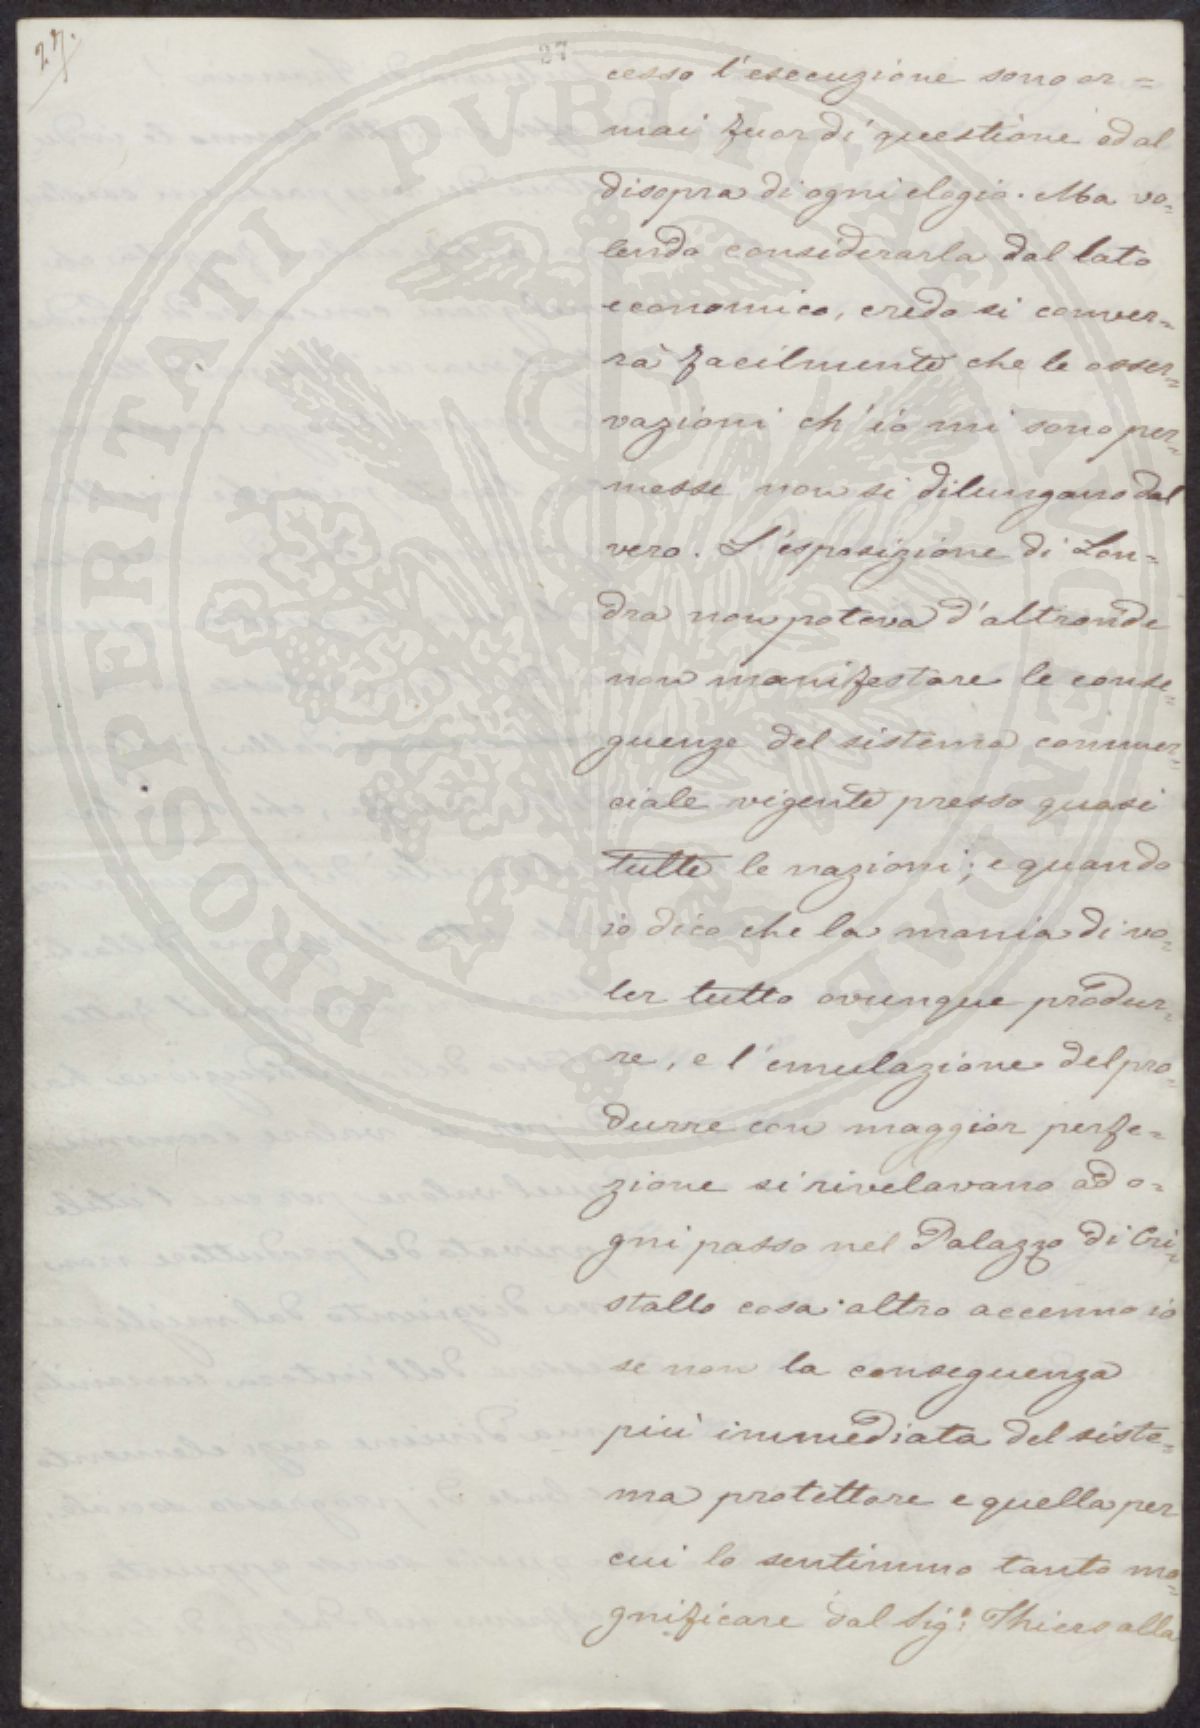 27.
27
cesso l'esecuzione sono or=
mai fuor di questione ed al
disopra di ogni elogio. Ma vo=
lendo considerarla dal lato
economico, credo si conver=
rà facilmente che le osser=
vazioni ch'io mi sono per=
messe non si dilungano dal
vero. L'esposizione di Lon=
dra non poteva d'altronde
non manifestare le conse=
guenze del sistema commer=
ciale vigente presso quasi
tutte le nazioni; e quando
io dico che la mania di vo=
ler tutto ovunque produr=
re, e l'emulazione del pro=
durre con maggior perfe=
zione si rivelavano ad o=
gni passo nel Palazzo di Cri=
stallo cosa altro accenno io
se non la conseguenza
più immediata del siste=
ma protettore e quella per
cui lo sentimmo tanto ma=
gnificare dal Sig.: Thiers alla
PROSPERITATI PUBLICAE